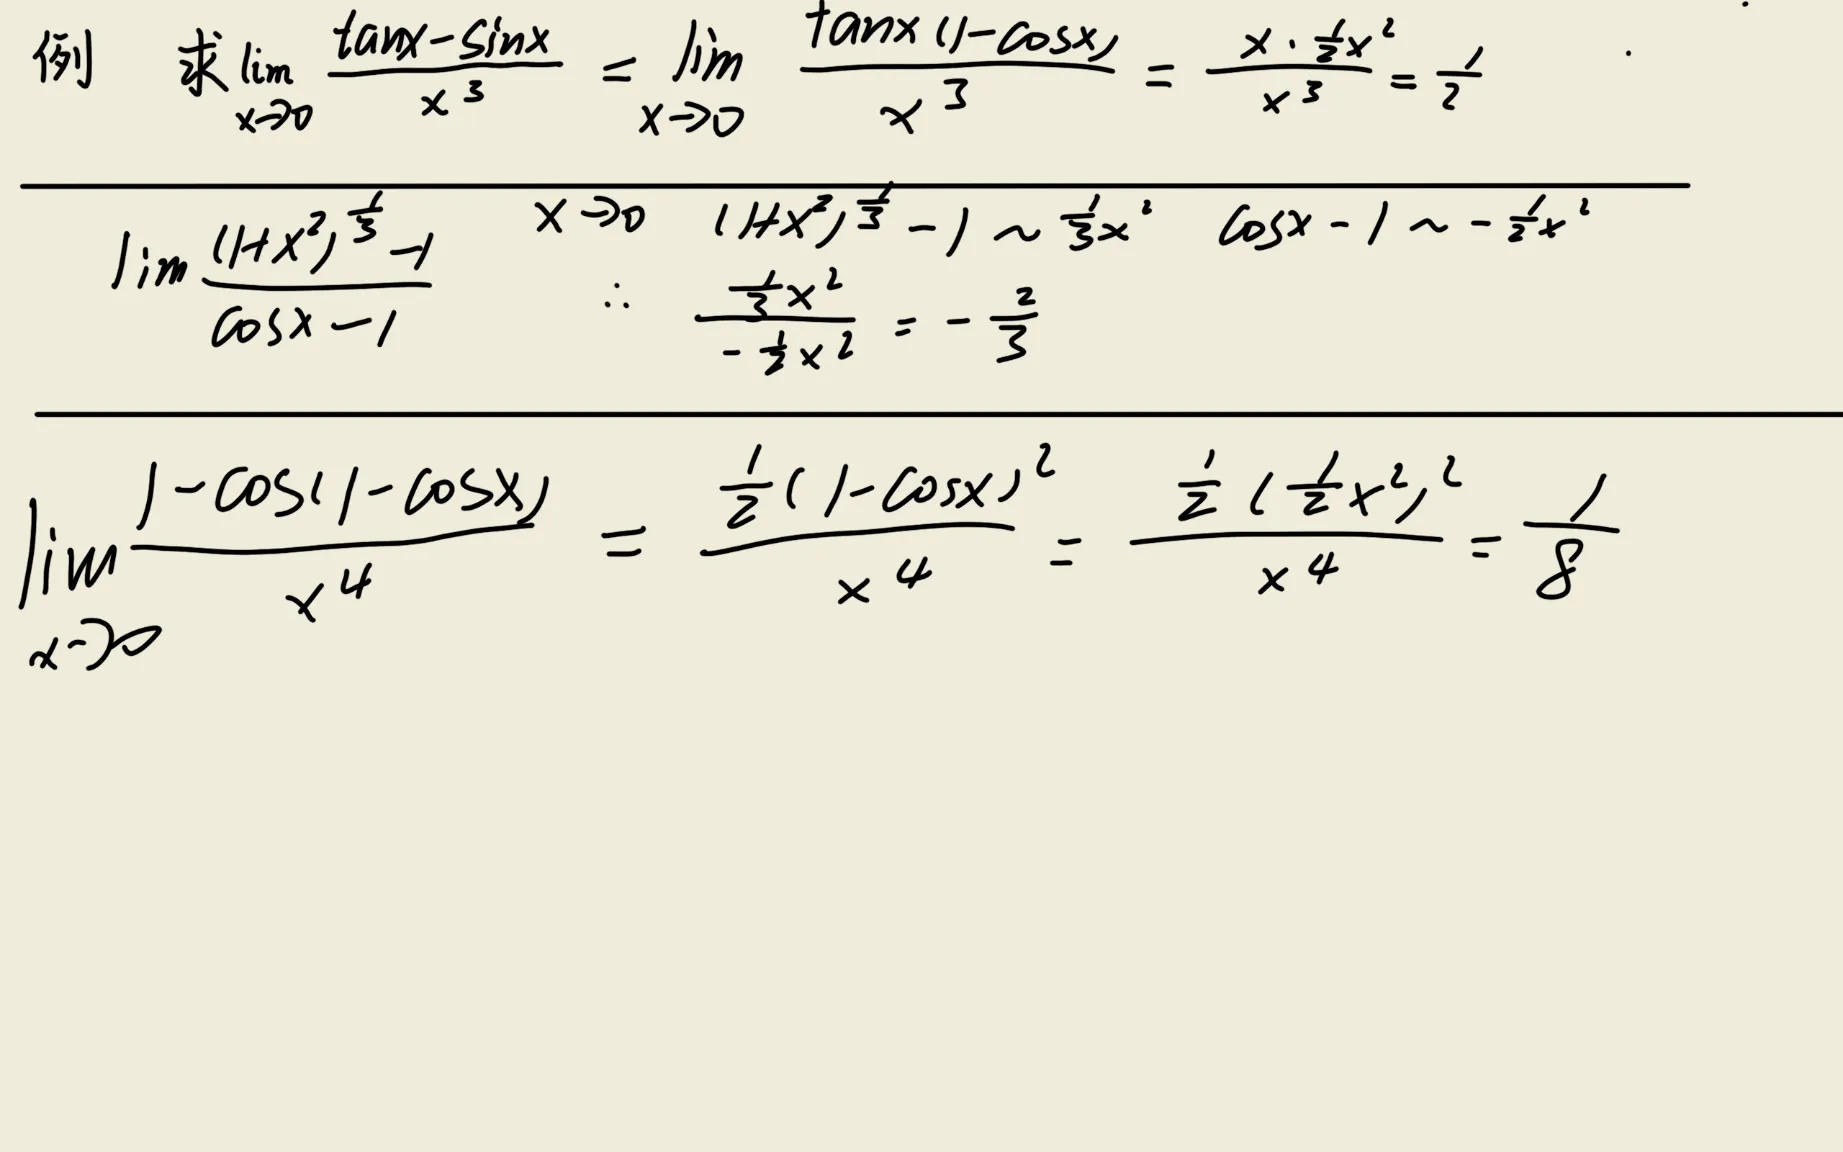 例 求 lim_{x→0} (tanx-sinx)/x^3 = lim_{x→0} tanx(1-cosx)/x^3 = (x·1/2x^2)/x^3 = 1/2
lim ((1+x^2)^{1/3}-1)/(cosx-1) x→0 (1+x^2)^{1/3}-1 ~ 1/3x^2 cosx-1 ~ -1/2x^2
∴ (1/3x^2)/(-1/2x^2) = -2/3
lim_{x→0} (1-cos(1-cosx))/x^4 = (1/2(1-cosx)^2)/x^4 = (1/2(1/2x^2)^2)/x^4 = 1/8